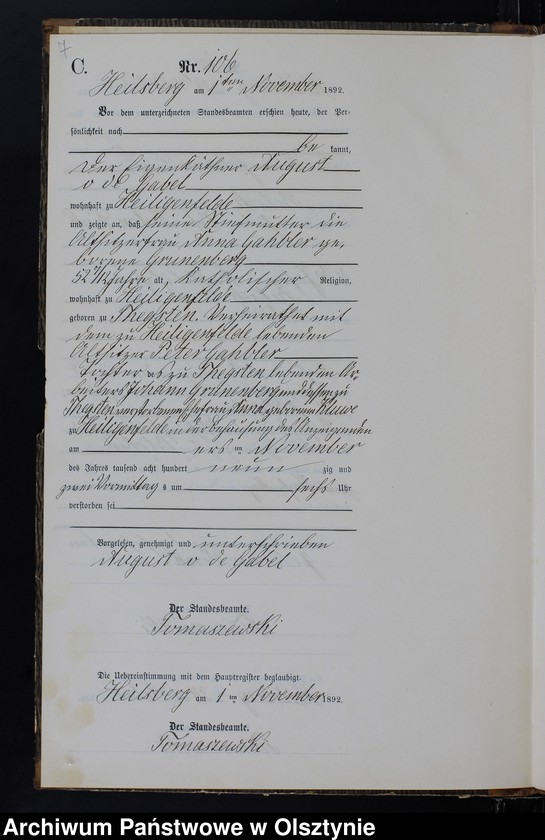 7
C.
Nr. 106
Heilsberg am 1ten November 1892.
Vor dem unterzeichneten Standesbeamten erschien heute, der Per-
sönlichkeit nach
be kannt,
der Eigenkäthner August
v de Gabel
wohnhaft zu Heiligenfelde
und zeigte an, daß seine Stiefmutter die
Altsitzerfrau Anna Gahbler ge,
borene Grunenberg
52 Jahre alt, Katholischer Religion,
wohnhaft zu Heiligenfelde
geboren zu Thegsten, Verheirathet mit
dem zu Heiligenfelde lebenden
Altsitzer Peter Gahbler
Tochter des zu Thegsten lebenden Ar-
beiters Johann Grunenberg und dessen zu
Thegsten verstorbenen Ehefrau Anna geborenen Kluwe
zu Heiligenfelde in der Behausung des Anzeigenden
am ers ten November
des Jahres tausend acht hundert neun zig und
zwei Vormittag s um sechs Uhr
verstorben sei
Vorgelesen, genehmigt und unterschrieben
August v de Gabel
Der Standesbeamte.
Tomaszewski
Die Uebereinstimmung mit dem Hauptregister beglaubigt.
Heilsberg am 1 ten November 1892.
Der Standesbeamte.
Tomaszewski
Archiwum Państwowe w Olsztynie